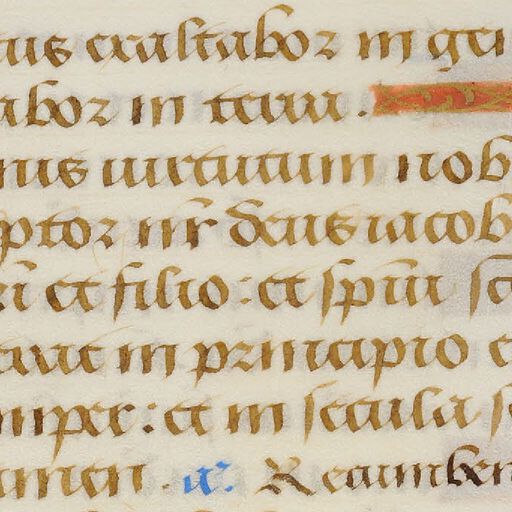 tus exaltabor in gen
abor in terra .
nus uirtutum nob
ptor nr̄ deus iacob
ri et filio : et spūi sc
erat in principio e
mper : et in secula s
amen . a͂. Recumben